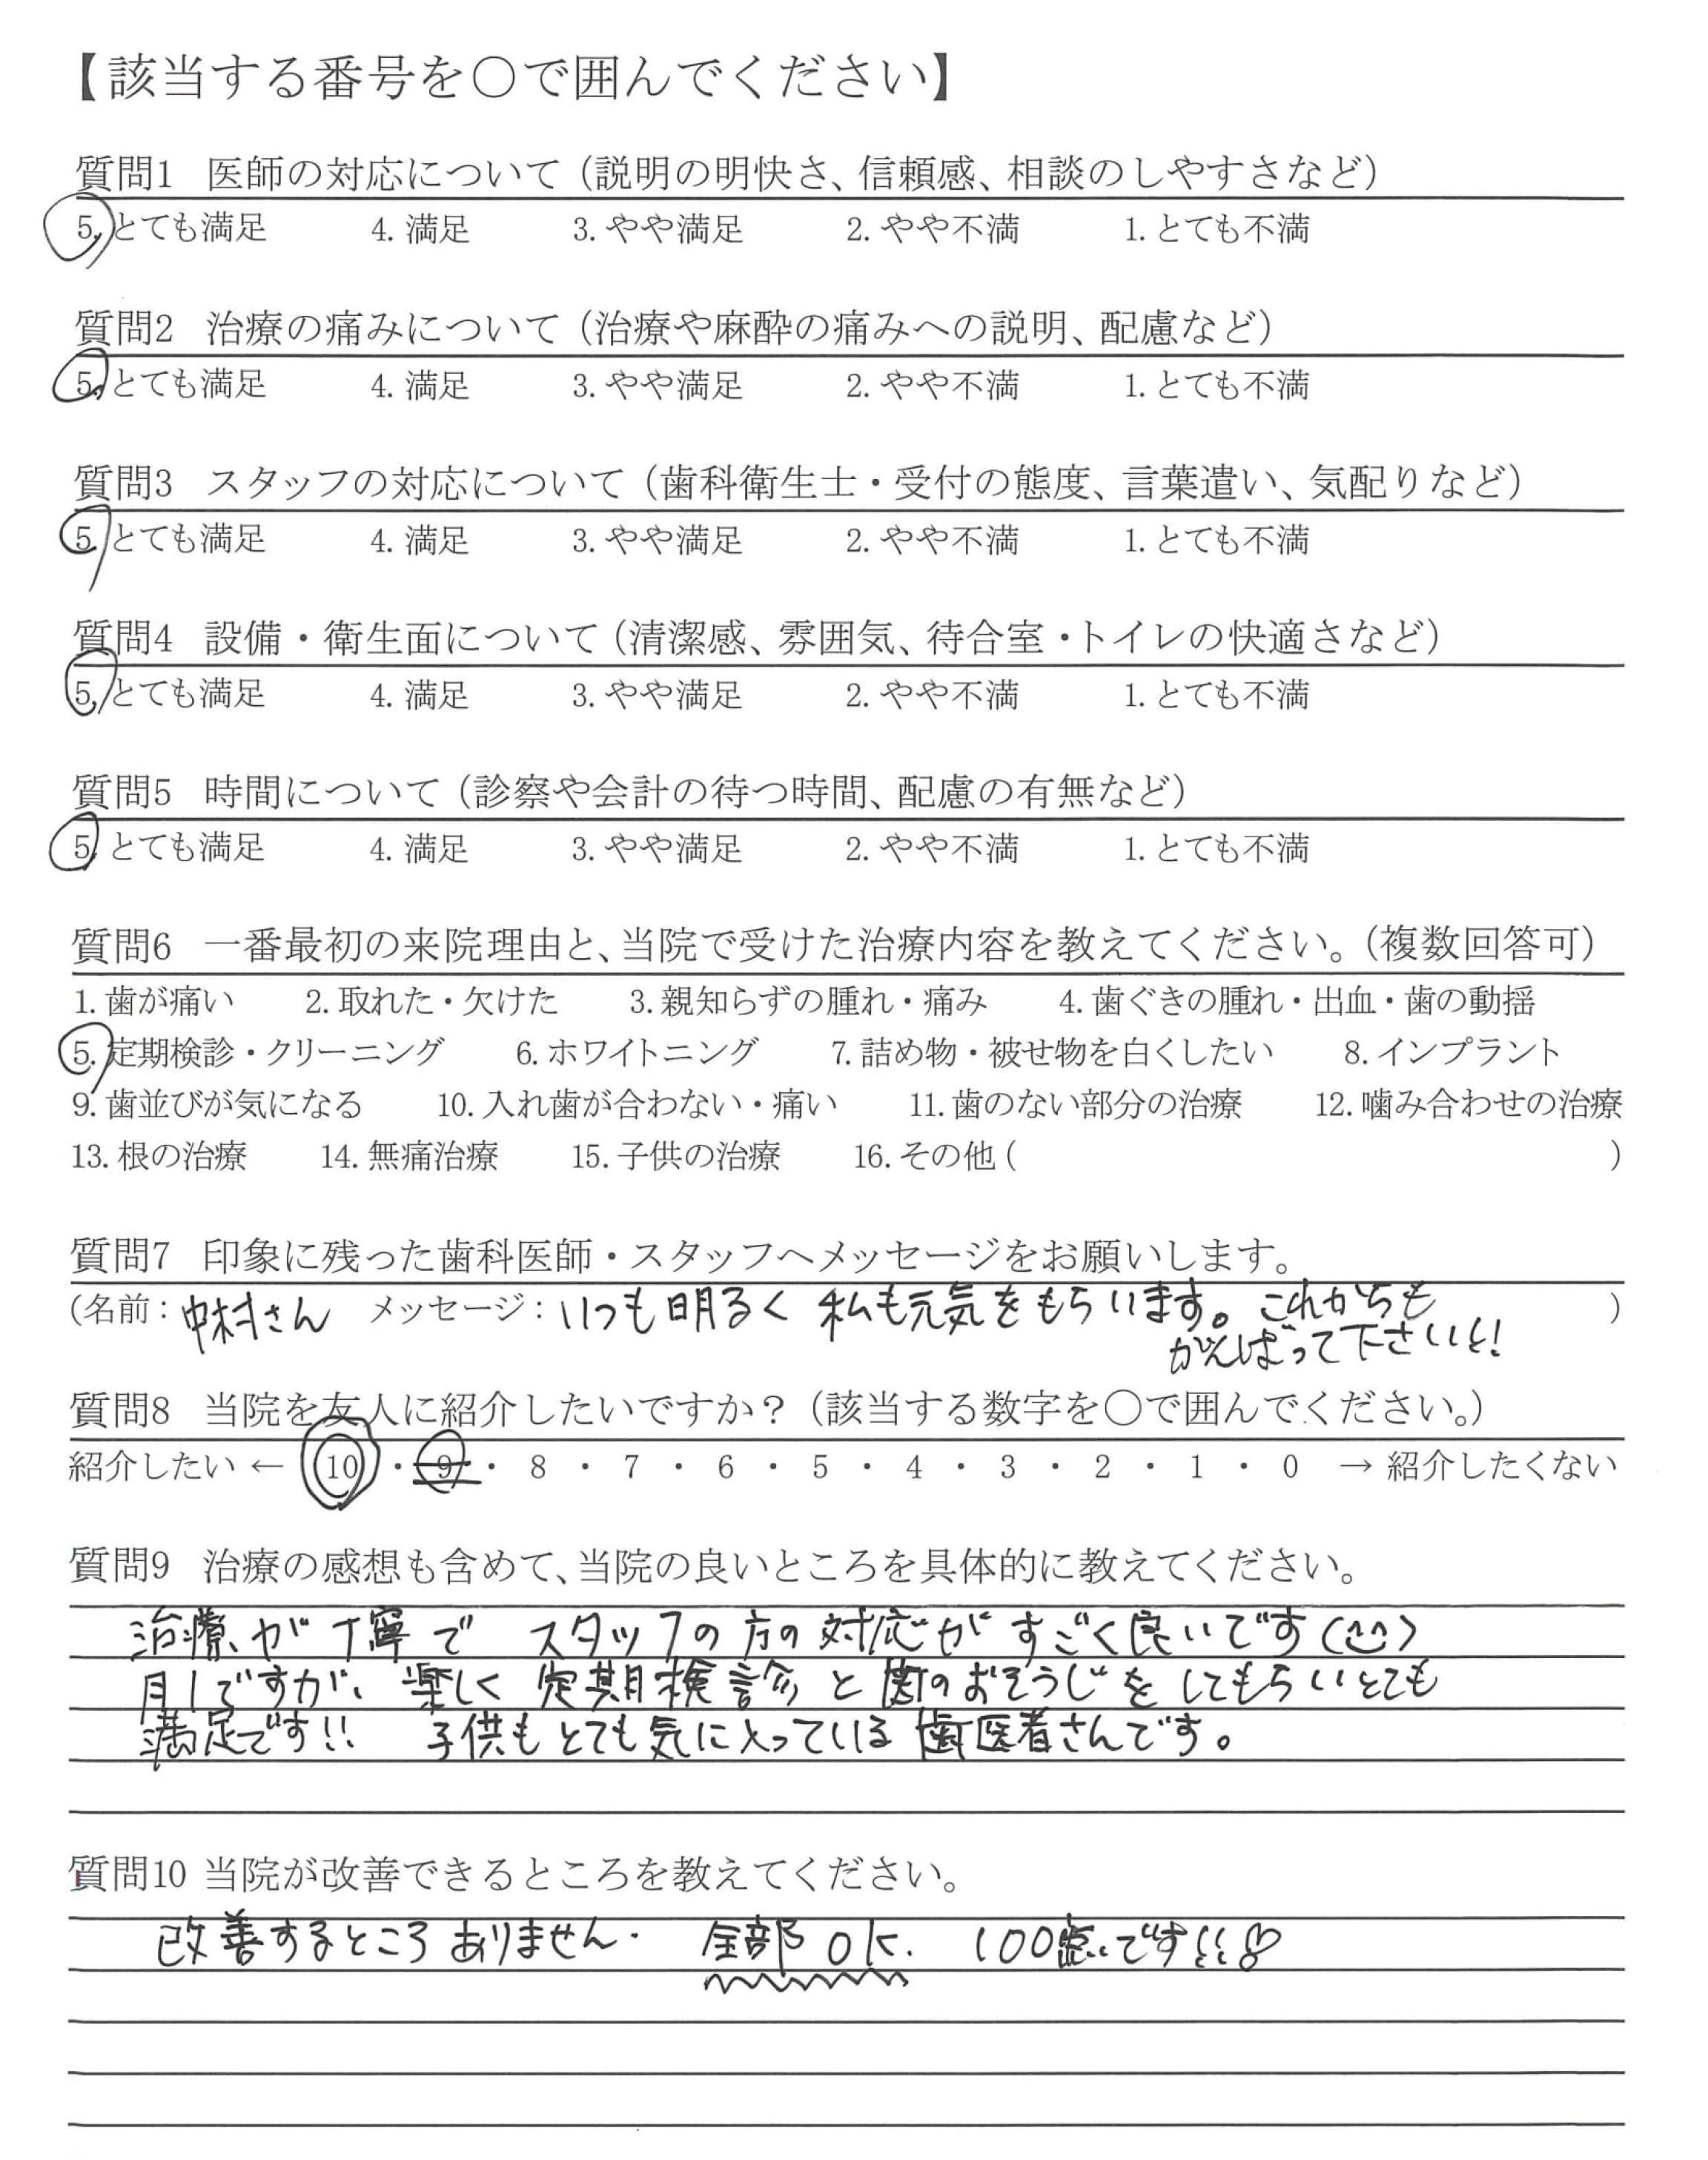 【該当する番号を○で囲んでください】
質問1 医師の対応について（説明の明快さ、信頼感、相談のしやすさなど）
5. とても満足 4. 満足 3. やや満足 2. やや不満 1. とても不満
質問2 治療の痛みについて（治療や麻酔の痛みへの説明、配慮など）
5. とても満足 4. 満足 3. やや満足 2. やや不満 1. とても不満
質問3 スタッフの対応について（歯科衛生士・受付の態度、言葉遣い、気配りなど）
5. とても満足 4. 満足 3. やや満足 2. やや不満 1. とても不満
質問4 設備・衛生面について（清潔感、雰囲気、待合室・トイレの快適さなど）
5. とても満足 4. 満足 3. やや満足 2. やや不満 1. とても不満
質問5 時間について（診察や会計の待つ時間、配慮の有無など）
5. とても満足 4. 満足 3. やや満足 2. やや不満 1. とても不満
質問6 一番最初の来院理由と、当院で受けた治療内容を教えてください。（複数回答可）
1. 歯が痛い 2. 取れた・欠けた 3. 親知らずの腫れ・痛み 4. 歯ぐきの腫れ・出血・歯の動揺
5. 定期検診・クリーニング 6. ホワイトニング 7. 詰め物・被せ物を白くしたい 8. インプラント
9. 歯並びが気になる 10. 入れ歯が合わない・痛い 11. 歯のない部分の治療 12. 噛み合わせの治療
13. 根の治療 14. 無痛治療 15. 子供の治療 16. その他（ ）
質問7 印象に残った歯科医師・スタッフへメッセージをお願いします。
（名前：中村さん メッセージ：いつも明るく 私も元気をもらいます。これからも ）
がんばって下さいと!
質問8 当院を友人に紹介したいですか？（該当する数字を○で囲んでください。）
紹介したい ← 10 ・ 9 ・ 8 ・ 7 ・ 6 ・ 5 ・ 4 ・ 3 ・ 2 ・ 1 ・ 0 → 紹介したくない
質問9 治療の感想も含めて、当院の良いところを具体的に教えてください。
治療が丁寧で スタッフの方の対応がすごく良いです(^^)
月1ですが、楽しく定期検診と歯のおそうじをしてもらいとても
満足です!! 子供もとても気に入っている歯医者さんです。
質問10 当院が改善できるところを教えてください。
改善するところありません. 全部OK. 100点です!!♡